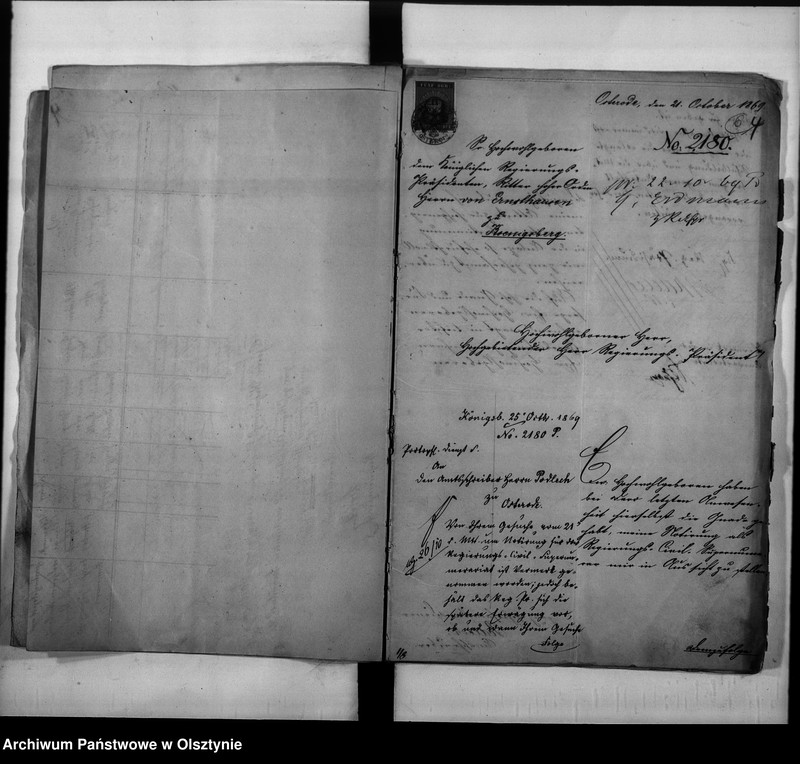 Osterode, den 21. October 1869
6 4
No. 2180.
Sr Hochwohlgeboren
dem Königlichen Regierungs-
Präsidenten, Ritter hoher Orden
Herrn von Ernsthausen
zu
Koenigsberg.
pr. 22. 10. 69. P.
Erdmann
Hochwohlgeborner Herr,
Hochgebietender Herr Regierungs-Präsident!
Königsb. 25 Octb. 1869
No. 2180 P.
An
den Amtsschreiber Herrn Podlech
zu
Osterode.
Von Ihrem Gesuche vom 21
d. Mts. um Notirung für das
Regierungs-Civil-Supernu-
merariat ist Vermerk ge-
nommen worden; jedoch be-
hält das Reg. Pr. sich die
spätere Erwägung vor,
ob und wann Ihrem Gesuche
Folge
26/10
1/2
Euer Hochwohlgeboren haben
bei Dero letzten Anwesen-
heit hierselbst die Gnade ge-
habt, meine Notirung als
Regierungs-Civil-Supernume-
rar mir in Aussicht zu stellen
Demzufolge
Archiwum Państwowe w Olsztynie